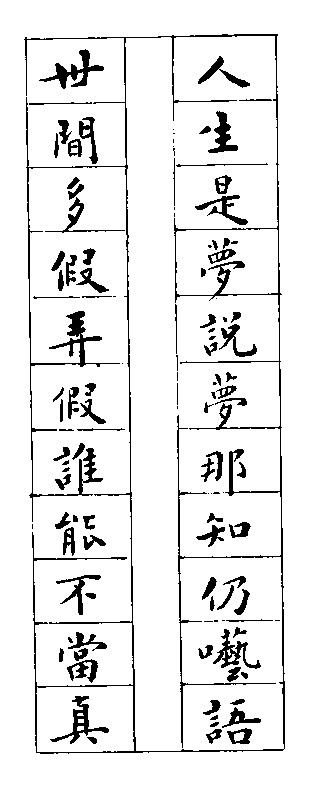 人生是夢說夢那知仍囈語
世間多假弄假誰能不當真